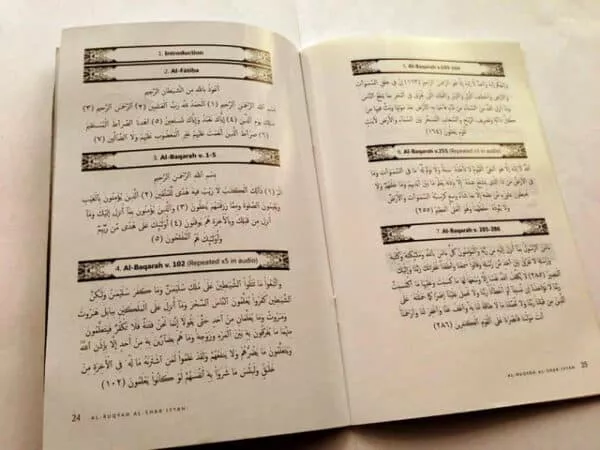 1. Introduction
2. Al-Fātiḥa
أعوذ بالله من الشيطان الرجيم
بسم الله الرحمن الرحيم (١) الحمد لله رب العلمين (٢) الرحمن الرحيم (٣)
ملك يوم الدين (٤) إياك نعبد وإياك نستعين (٥) اهدنا الصراط المستقيم
(٦) صراط الذين أنعمت عليهم غير المغضوب عليهم ولا الضالين (٧)
3. Al-Baqarah v. 1-5
بسم الله الرحمن الرحيم
الم (١) ذالك الكتب لا ريب فيه هدى للمتقين (٢) الذين يؤمنون بالغيب
ويقيمون الصلوة ومما رزقنهم ينفقون (٣) والذين يؤمنون بما أنزل إليك وما
أنزل من قبلك وبالأخرة هم يوقنون (٤) أولئك على هدى من ربهم
وأولئك هم المفلحون (٥)
4. Al-Baqarah v. 102 (Repeated x5 in audio)
واتبعوا ما تتلوا الشيطين على ملك سليمن وما كفر سليمن ولكن
الشيطين كفروا يعلمون الناس السحر وما أنزل على الملكين ببابل هروت
ومروت وما يعلمان من أحد حتى يقولا إنما نحن فتنة فلا تكفر فيتعلمون
منهما ما يفرقون به بين المرء وزوجه وما هم بضارين به من أحد إلا بإذن الله
ويتعلمون ما يضرهم ولا ينفعهم ولقد علموا لمن اشتراه ما له في الأخرة من
خلق ولبئس ما شروا به أنفسهم لو كانوا يعلمون (١٠٢)
24
AL-RUQYAH AL-SHAR'IYYAH
5. Al-Baqarah v.163-164
وإلهكم إله واحد لا إله إلا هو الرحمن الرحيم (١٦٣) إن في خلق السموات
والأرض واختلاف الليل والنهار والفلك التي تجري في البحر بما ينفع الناس
وما أنزل الله من السماء من ماء فأحيا به الأرض بعد موتها وبث فيها من
كل دابة وتصريف الريح والسحاب المسخر بين السماء والأرض لأيت
لقوم يعقلون (١٦٤)
6. Al-Baqarah v.255 (Repeated x3 in audio)
الله لا إله إلا هو الحي القيوم لا تأخذه سنة ولا نوم له ما في السموات وما
في الأرض من ذا الذي يشفع عنده إلا بإذنه يعلم ما بين أيديهم وما خلفهم
ولا يحيطون بشيء من علمه إلا بما شاء وسع كرسيه السموات والأرض
ولا يئوده حفظهما وهو العلي العظيم (٢٥٥)
7. Al-Baqarah v. 285-286
ءامن الرسول بما أنزل إليه من ربه والمؤمنون كل ءامن بالله وملئكته وكتبه
ورسله لا نفرق بين أحد من رسله وقالوا سمعنا وأطعنا غفرانك ربنا وإليك
المصير (٢٨٥) لا يكلف الله نفسا إلا وسعها لها ما كسبت وعليها ما اكتسبت
أنت مولنا فانصرنا على القوم الكفرين (٢٨٦)
25
AL-RUQYAH AL-SHAR'IYYAH